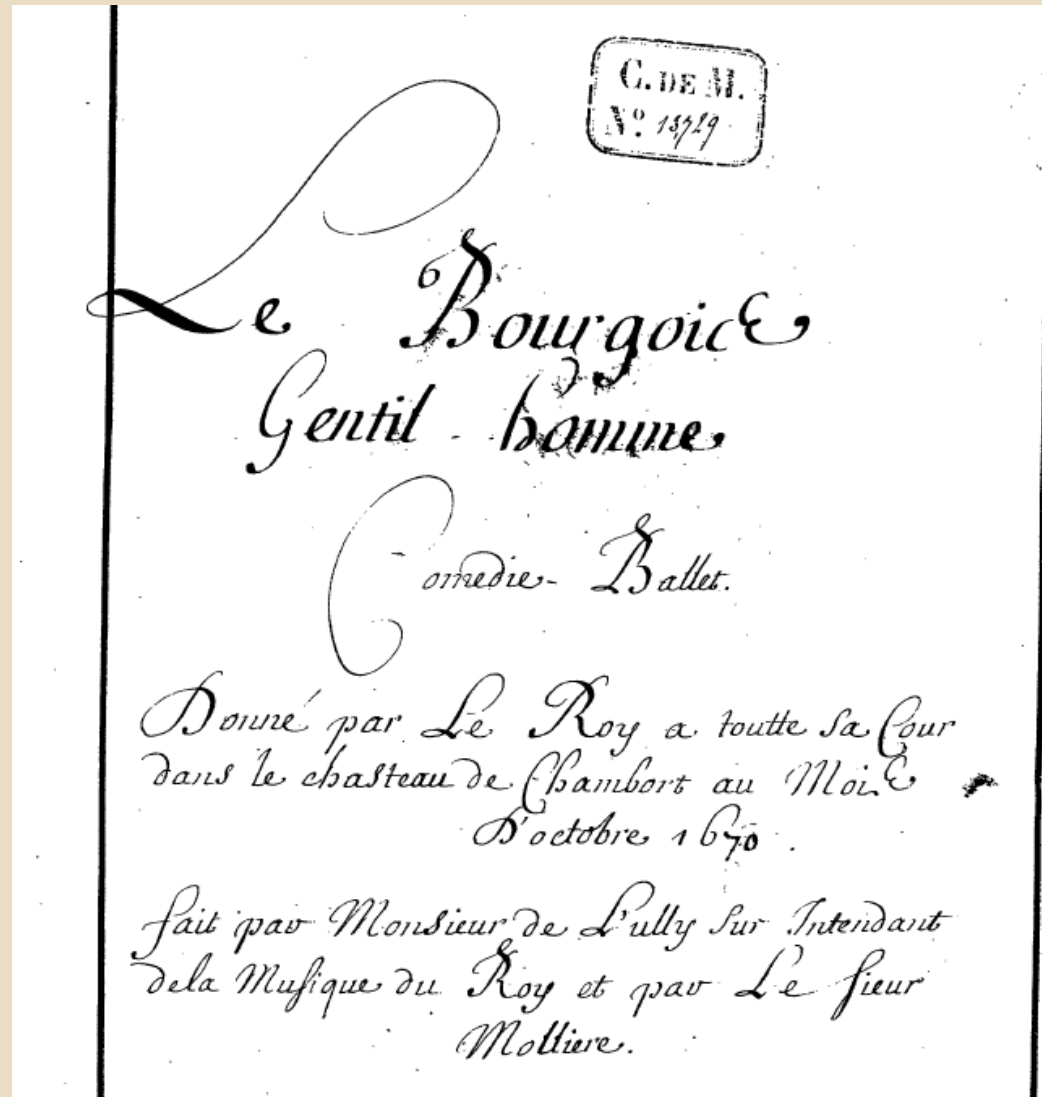 C. DE M.
N.º 13,729
Le Bourgoice
Gentil-homme
Comedie-Ballet.
Donné par Le Roy a toutte sa Cour
dans le chasteau de Chambort au Mois
D'octobre 1670.
fait par Monsieur de L'ully sur Intendant
dela Musique du Roy et par Le sieur
Molliere.